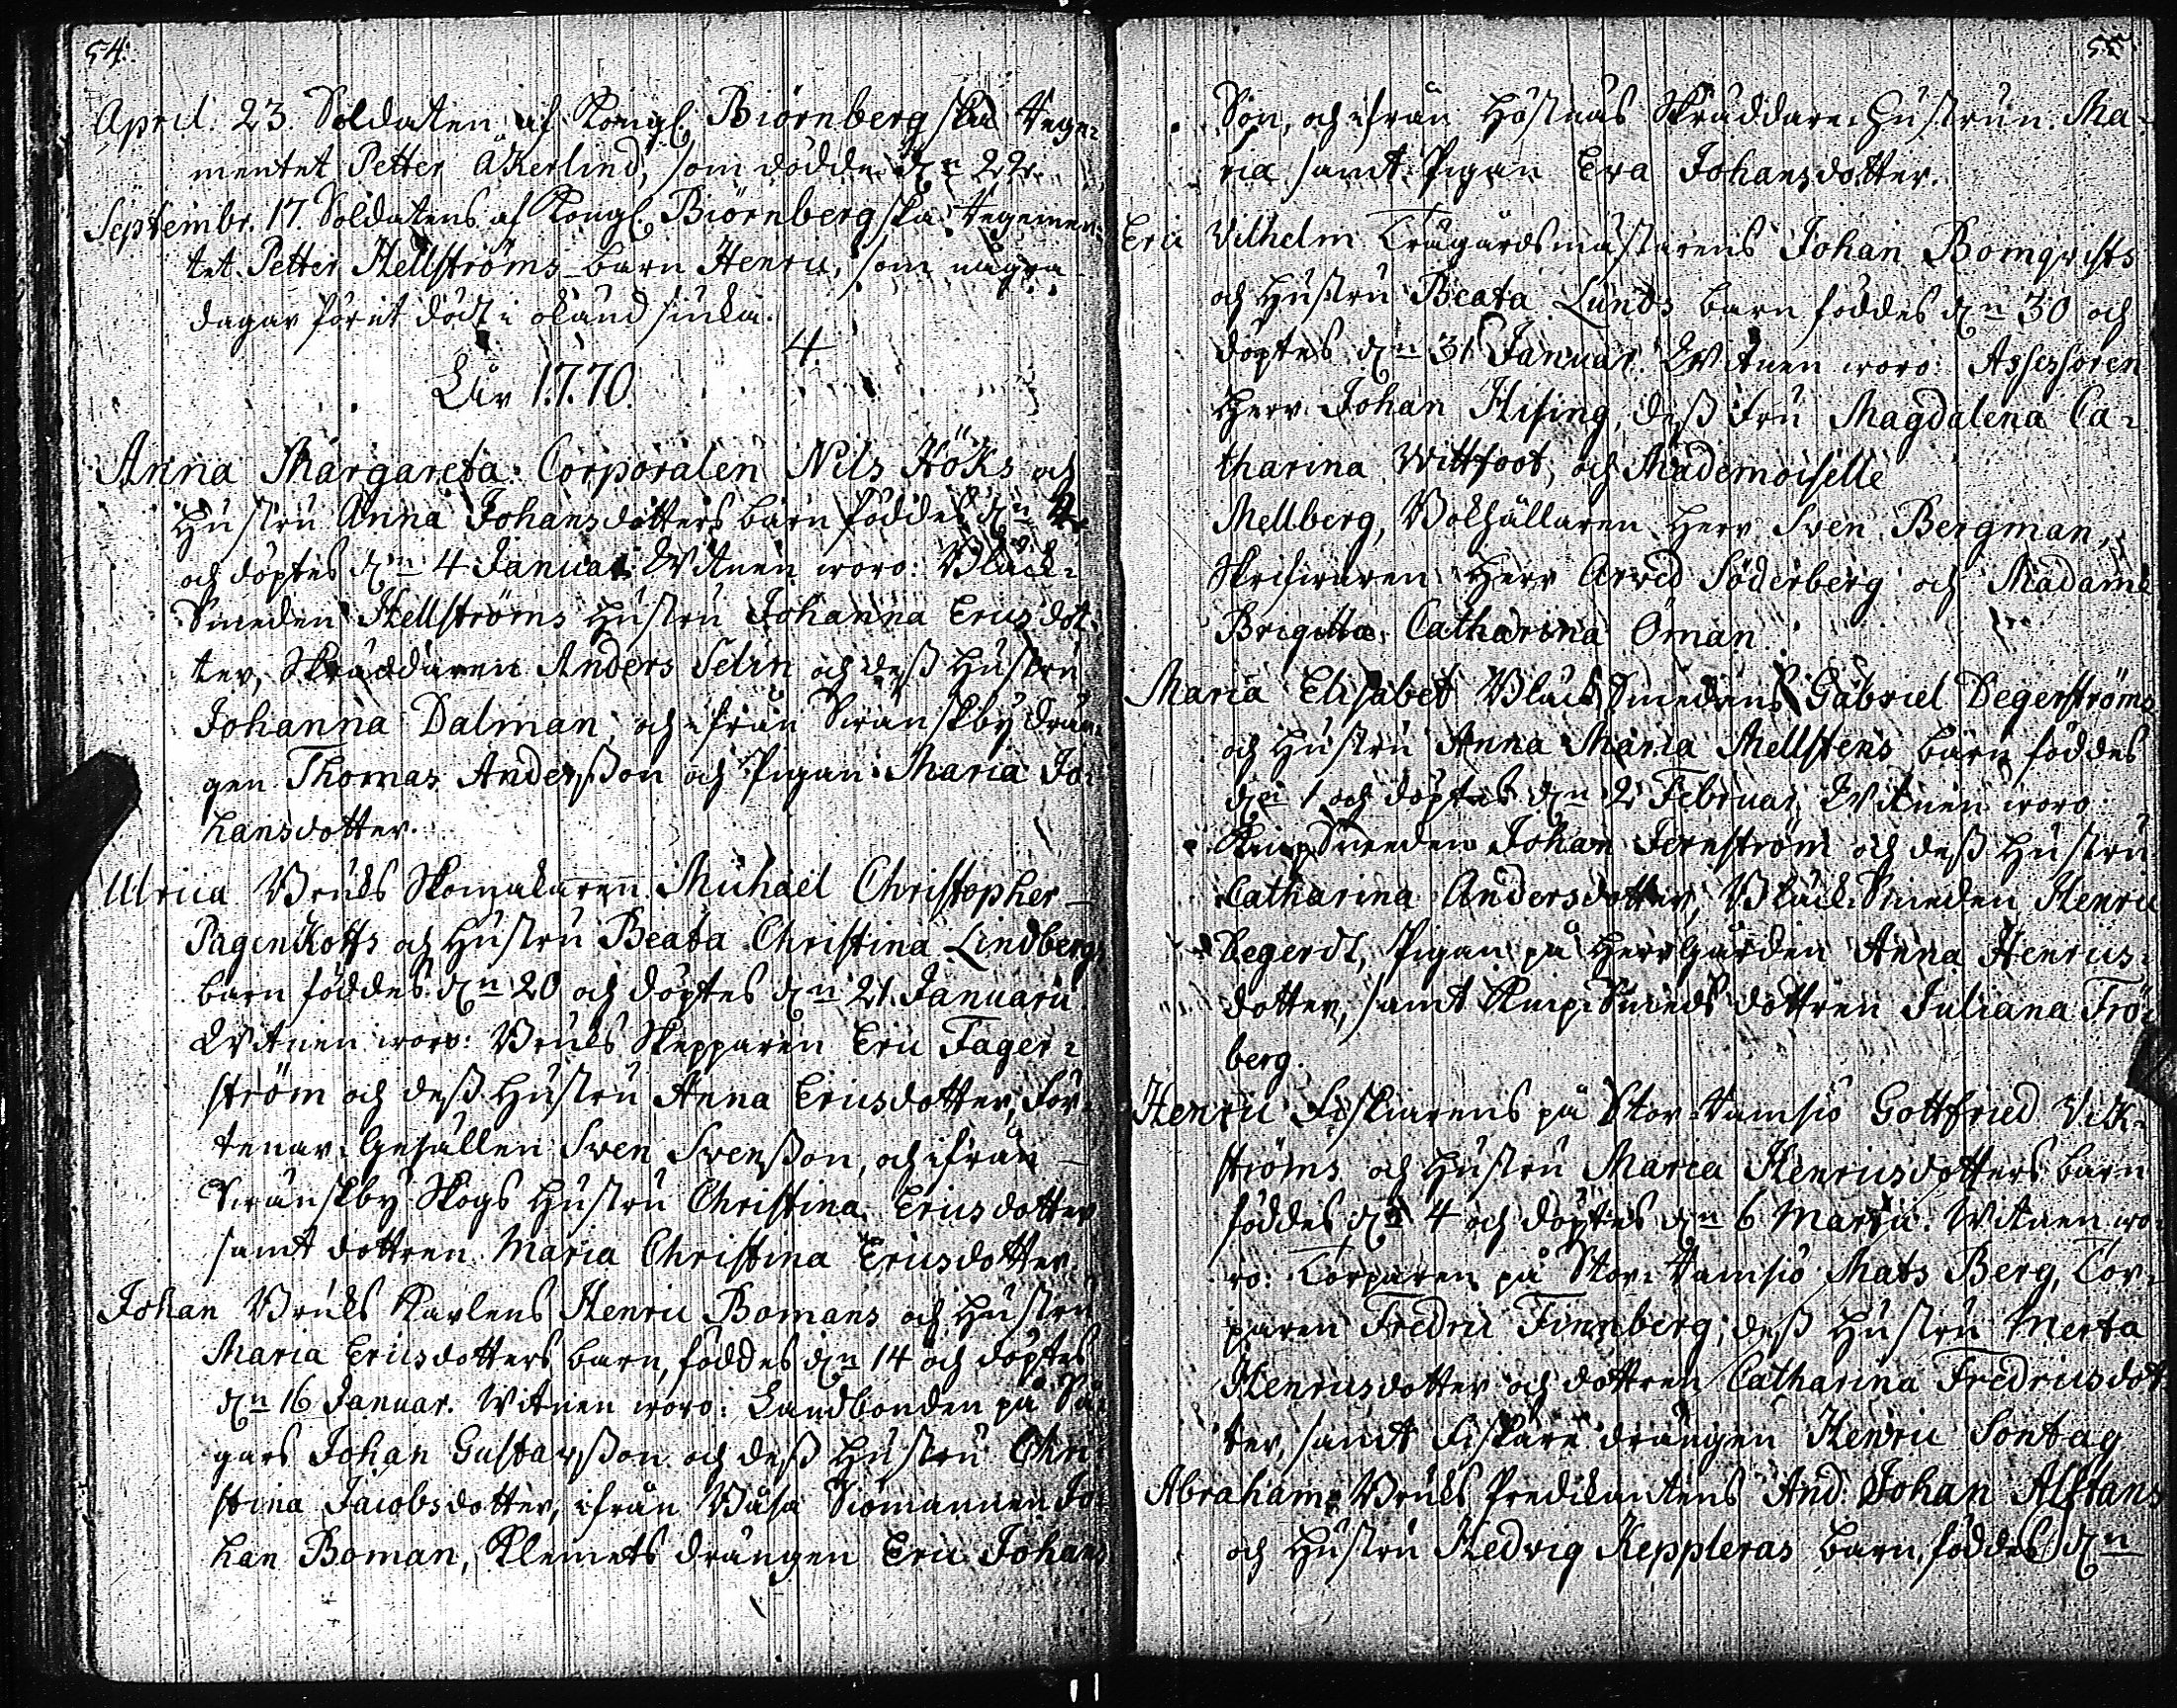 54.
April. 23. Soldaten af Kongl. Biörnbergska Rege-
mentet Petter Åkerlind, som dödde dn 22.
Septembr. 17. Soldatens af Kongl. Biörnbergska Regemen-
tet Petter Hellströms barn Henric, som några
dagar förut dödt i okänd siuka.
4.
Åhr 1770.
Anna Margareta: Corporalen Nils Höks och
Hustru Anna Johansdotters barn föddes dn
och döptes dn 4 Januar. Witnen woro: Black-
Smeden Hellströms hustru Johanna Ericsdot-
ter, Skräddaren Anders Selin och dess Hustru
Johanna Dalman, och ifrån Swänskby drän-
gen Thomas Andersson och Pigan Maria Jo-
hansdotter.
Ulrica Bruks Skomakaren Michael Christopher
Pagenkotts och Hustru Beata Christina Lindbergs
barn föddes dn 20 och döptes dn 21 Januarii
Witnen woro: Bruks Skepparen Eric Fager-
ström och dess Hustru Anna Ericsdotter, For-
tenar-Gesällen Sven Svensson, och ifrån
Swänskby Skogs Hustru Christina Ericsdotter
samt dottren Maria Christina Ericsdotter
Johan Bruks Karlens Henric Bomans och Hustru
Maria Ericsdotters barn, föddes dn 14 och döptes
dn 16 Januar. Witnen woro: Landbonden på Så-
gars Johan Gustavsson och dess Hustru Chri-
stina Jacobsdotter, ifrån Båsa Siömannen Jo-
han Boman, Klemets drängen Eric Johans
55.
Son, och ifrån Höstnäs Skräddare-Hustrun Ma-
ria samt Pigan Eva Johansdotter.
Eric Vilhelm Trägårdsmästarens Johan Bomqvists
och Hustru Beata Lunds barn föddes dn 30 och
döptes dn 31 Januar. Witnen woro: Assessoren
Herr Johan Hising, dess Fru Magdalena Ca-
tharina Wittfoot, och Mademoiselle
Mellberg, Bokhållaren Herr Sven Bergman,
Skrifwaren Herr Arved Söderberg och Madame
Brigitta Catharina Öman.
Maria Elisabet Black Smedens Gabriel Degerströms
och Hustru Anna Maria Mellstens barn föddes
dn 1 och döptes dn 2 Februar. Witnen woro
Knip Smeden Johan Jernström och dess Hustru
Catharina Andersdotter, Black Smeden Henric
Segerdt, Pigan på Herrgården Anna Henrics-
dotter, samt Knip Smeds dottren Juliana Frö-
berg.
Henric Fiskarens på Stor Ramsiö Gottfried Vik-
ströms och Hustru Maria Henricsdotters barn
föddes dn 4 och döptes dn 6 Martii. Witnen wo-
ro: Torparen på Stor-Ramsiö Mats Berg, Tor-
paren Fredric Finnberg, dess Hustru Merta
Henricsdotter och dottren Catharina Fredricsdot-
ter, samt Fiskare drängen Henric Sontag
Abraham Bruks Predikantens And. Johan Alftans
och Hustru Hedvig Keppleras barn, föddes dn